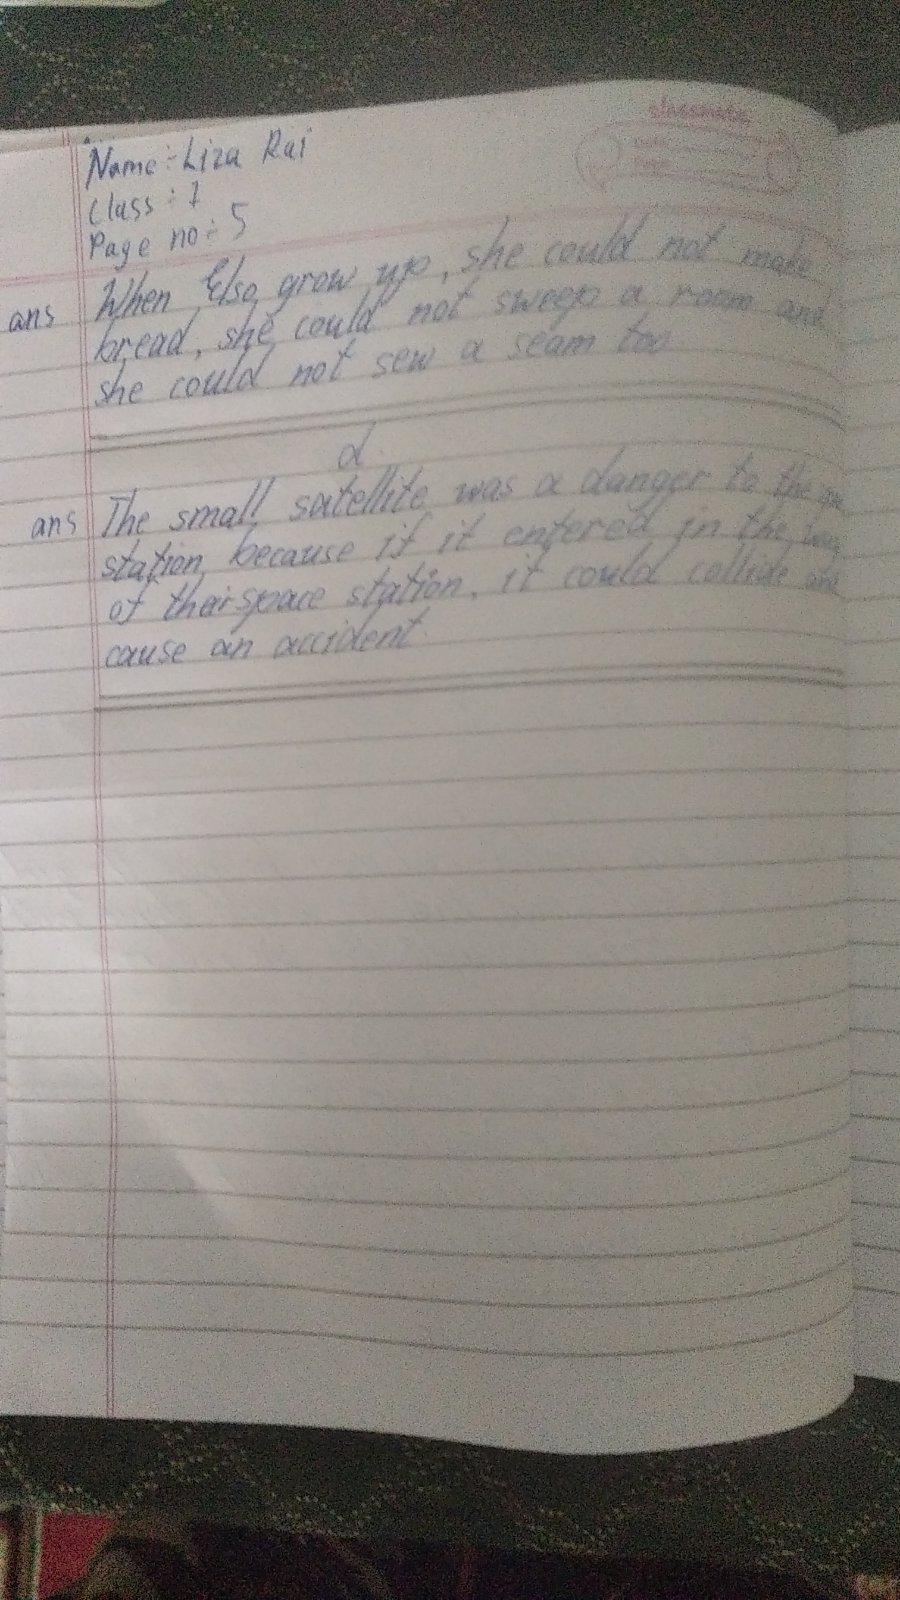 classmate
Name:- Liza Rai
Class :- 7
Page no :- 5
ans When Elsa grow up, she could not make
bread, she could not sweep a room and
she could not sew a seam too
d.
ans The small satellite was a danger to the
station because if it entered in the
of their space station, it could collide and
cause an accident.